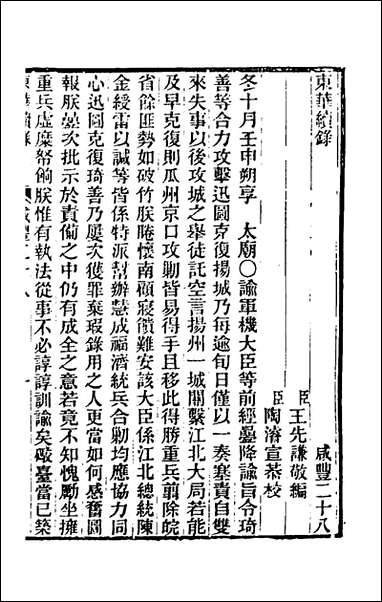 東華續錄
咸豐二十八
臣王先謙敬編
臣陶濬宣恭校
冬十月壬申朔享　太廟〇諭軍機大臣等前經疊降諭旨令琦
善等合力攻擊迅圖克復揚城乃每逾旬日僅以一奏塞責自雙
來失事以後攻城之舉徒託空言揚州一城關繫江北大局若能
及早克復則瓜州京口攻勦皆易得手且移此得勝重兵翦除皖
省餘匪勢如破竹朕睠懷南顧寢饋難安該大臣係江北總統陳
金綬雷以諴等皆係特派幫辦慧成福濟統兵合勦均應協力同
心迅圖克復琦善乃屢次獲罪棄瑕錄用之人更當如何感奮圖
報朕曡次批示於責備之中仍有成全之意若竟不知愧勵坐擁
重兵虛糜帑餉朕惟有執法從事不必諄諄訓諭矣礮臺當已築
東華續錄　咸豐二十八　一